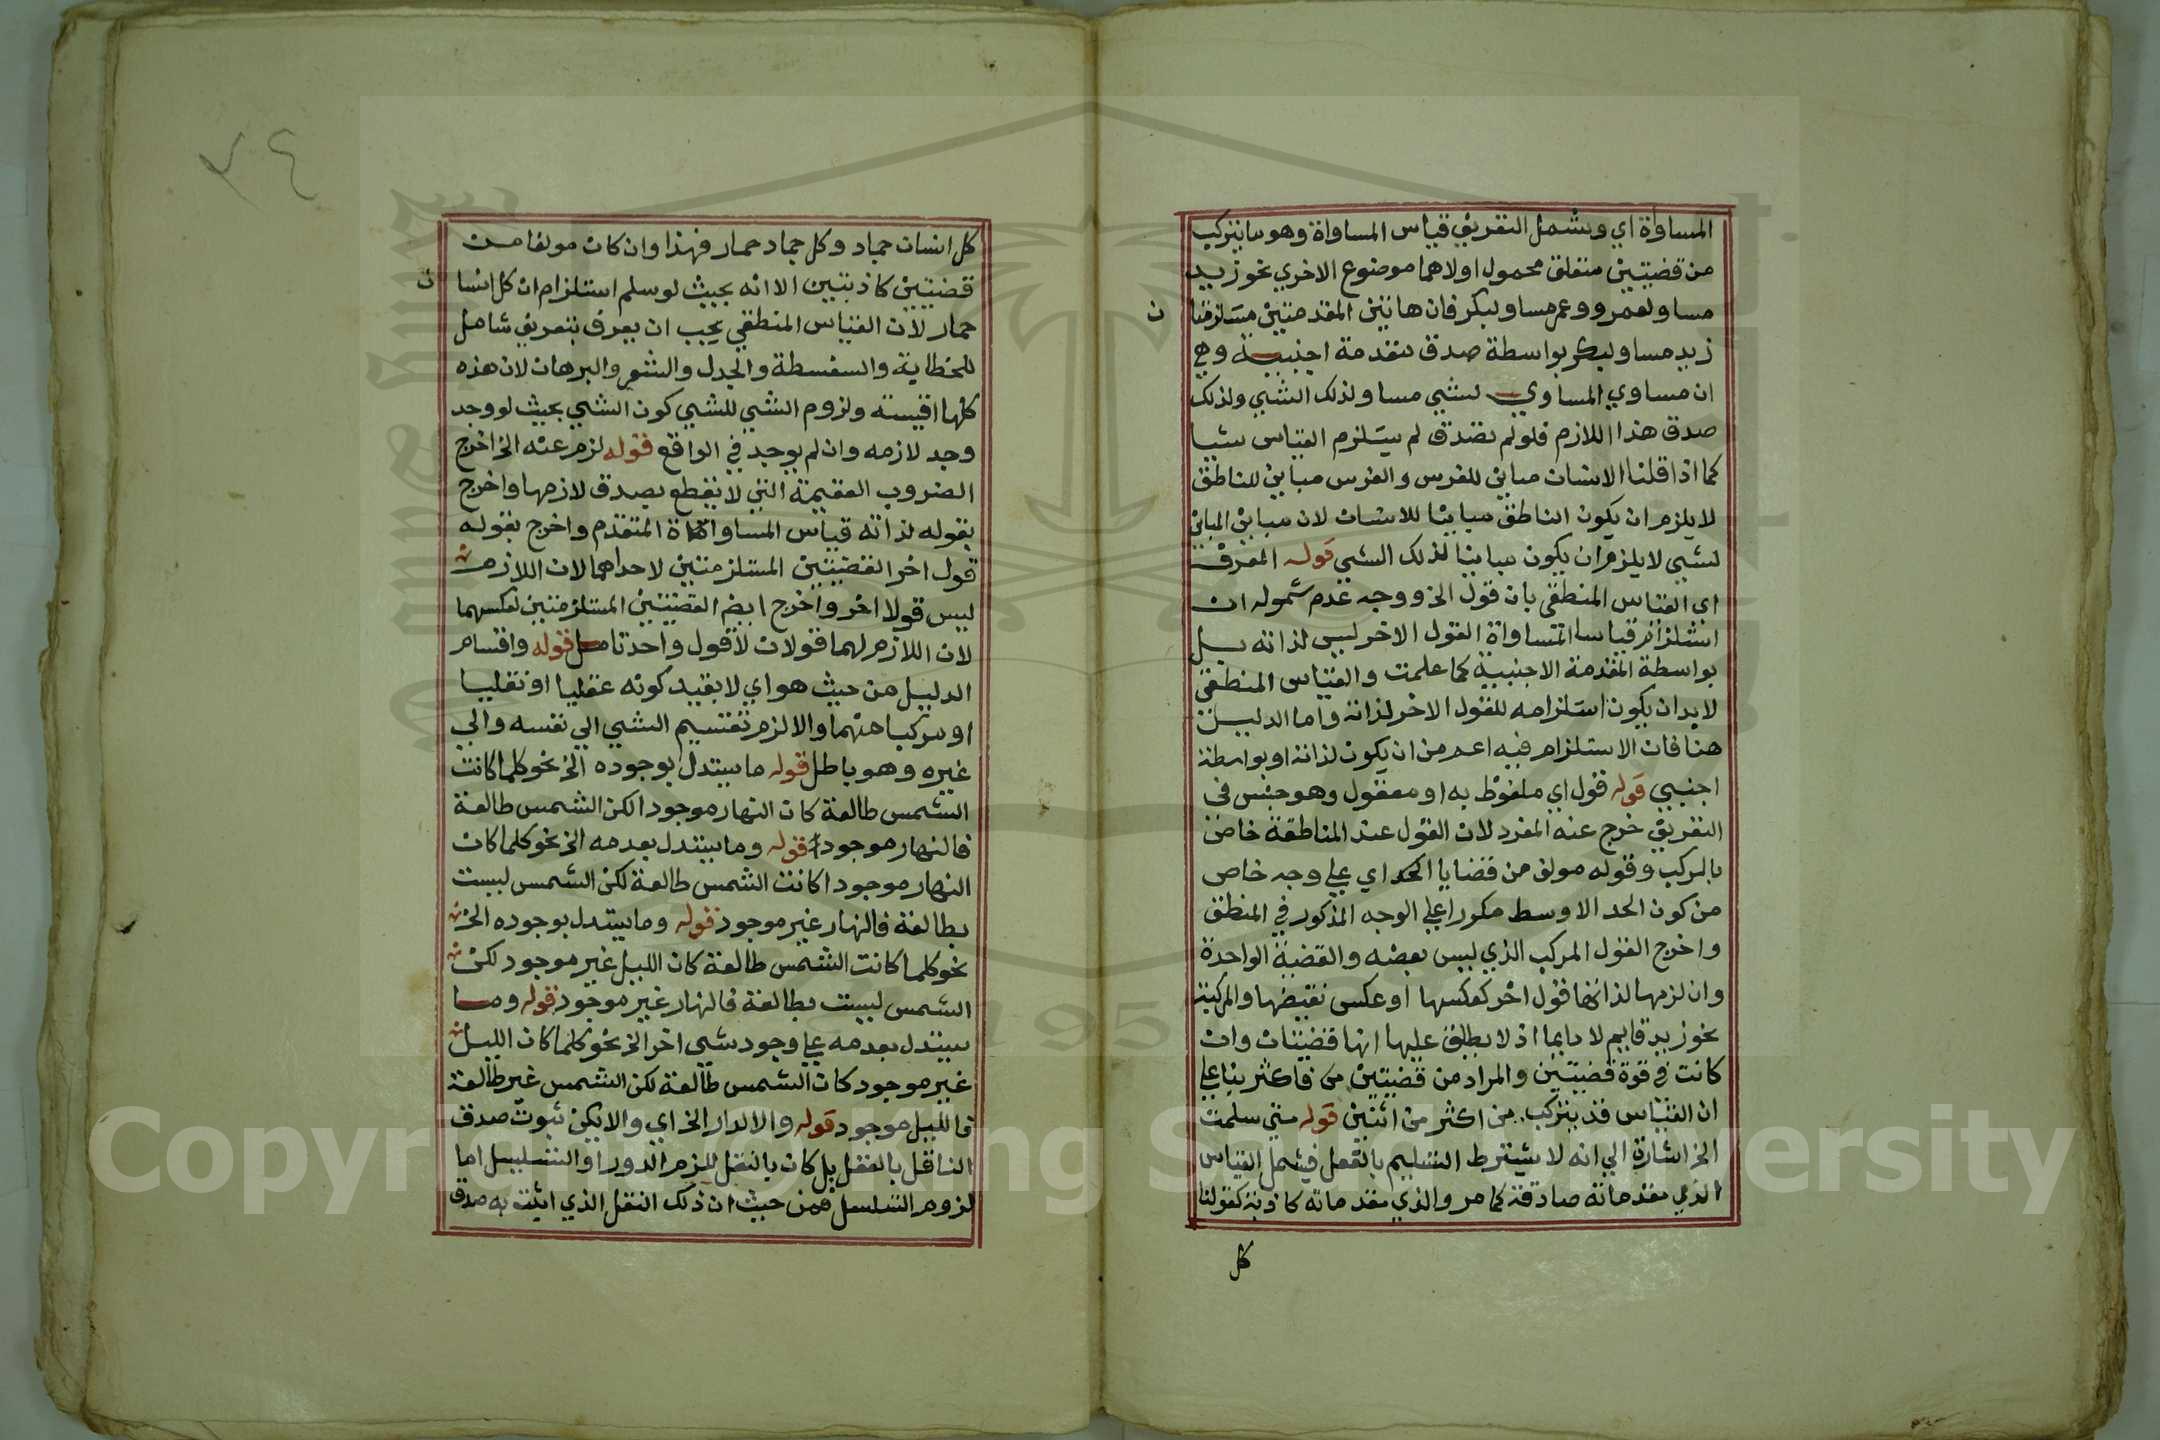 المساواة اي ويشمل التعريف قياس المساواة وهو ما يتركب
من قضيتين متعلق محمول اولاهما موضوع الاخري نحو زيد
مساو لعمرو وعمر مساو لبكر فان هاتين المقدمتين مستلزمتا
ن
زيد مساو لبكر بواسطة صدق مقدمة اجنبية وهي
ان مساوي المساوي لشي مساو لذلك الشي ولذلك
صدق هذا اللازم فلو لم تصدق لم يستلزم القياس شيا
كما اذا قلنا الانسان مباين للفرس والفرس مباين للناطق
لا يلزم ان يكون الناطق مباينا للانسان لان مباين المباين
لشي لا يلزم ان يكون مباينا لذلك الشي قوله المعرف
اي القياس المنطقي بان قول الخ ووجه عدم شموله ان
استلزام قياسا المساواة القول الاخر ليس لذاته بل
بواسطة المقدمة الاجنبية كما علمت والقياس المنطقي
لا بد ان يكون استلزامه للقول الاخر لذاته واما الدليل
هنا فان الاستلزام فيه اعم من ان يكون لذاته او بواسطة
اجنبي قوله قول اي ملفوظ به او معقول وهو جنس في
التعريف خرج عنه المفرد لان القول عند المناطقة خاص
بالمركب وقوله مولف من قضايا الحد اي علي وجه خاص
من كون الحد الاوسط مكررا علي الوجه المذكور في المنطق
واخرج القول المركب الذي ليس بعضه والقضية الواحدة
وان لزمها لذاتها قول اخر كعكسها او عكس نقيضها والمركبة
نحو زيد قايم لا دايما اذ لا يطلق عليها انها قضيتان وان
كانت في قوة قضيتين والمراد من قضيتين فاكثر بنا علي
ان القياس قد يتركب من اكثر من اثنين قوله متي سلمت
الخ اشارة الي انه لا يشترط التسليم بالفعل فيشمل القياس
الذي مقدماته صادقة كما مر والذي مقدماته كاذبة كقولنا
كل
٧٤
كل انسان جماد وكل جماد حمار فهذا وان كان مولفا من
قضيتين كاذبتين الا انه بحيث لو سلم استلزام ان كل انسا
ن
حمار لان القياس المنطقي يجب ان يعرف بتعريف شامل
للخطابة والسفسطة والجدل والشعر والبرهان لان هذه
كلها اقيسته ولزوم الشي للشي كون الشي بحيث لو وجد
وجد لازمه وان لم يوجد في الواقع قوله لزم عنه الخ اخرج
الضروب العقيمة التي لا يقطع بصدق لازمها واخرج
بقوله لذاته قياس المساواة المتقدم واخرج بقوله
قول اخر القضيتين المستلزمتين لاحداهما لان اللازم
ليس قولا اخر واخرج ايضا القضيتين المستلزمتين لعكسهما
لان اللازم لهما قولان لا قول واحد تامل قوله واقسام
الدليل من حيث هو اي لا بقيد كونه عقليا او نقليا
او مركبا منهما والا لزم تقسيم الشي الي نفسه والي
غيره وهو باطل قوله ما يستدل بوجوده الخ نحو كلما كانت
الشمس طالعة كان النهار موجودا لكن الشمس طالعة
فالنهار موجود قوله وما يستدل بعدمه الخ نحو كلما كان
النهار موجودا كانت الشمس طالعة لكن الشمس ليست
بطالعة فالنهار غير موجود قوله وما يستدل بوجوده الخ
نحو كلما كانت الشمس طالعة كان الليل غير موجود لكن
الشمس ليست بطالعة فالنهار غير موجود قوله وما
يستدل بعدمه علي وجود شي اخر الخ نحو كلما كان الليل
غير موجود كان الشمس طالعة لكن الشمس غير طالعة
فالليل موجود قوله والا لدار الخ اي والا يكن ثبوت صدق
الناقل بالعقل بل كان بالنقل للزم الدور او التسلسل اما
لزوم التسلسل فمن حيث ان ذلك النقل الذي اثبت به صدق
Copyright © King Saud University